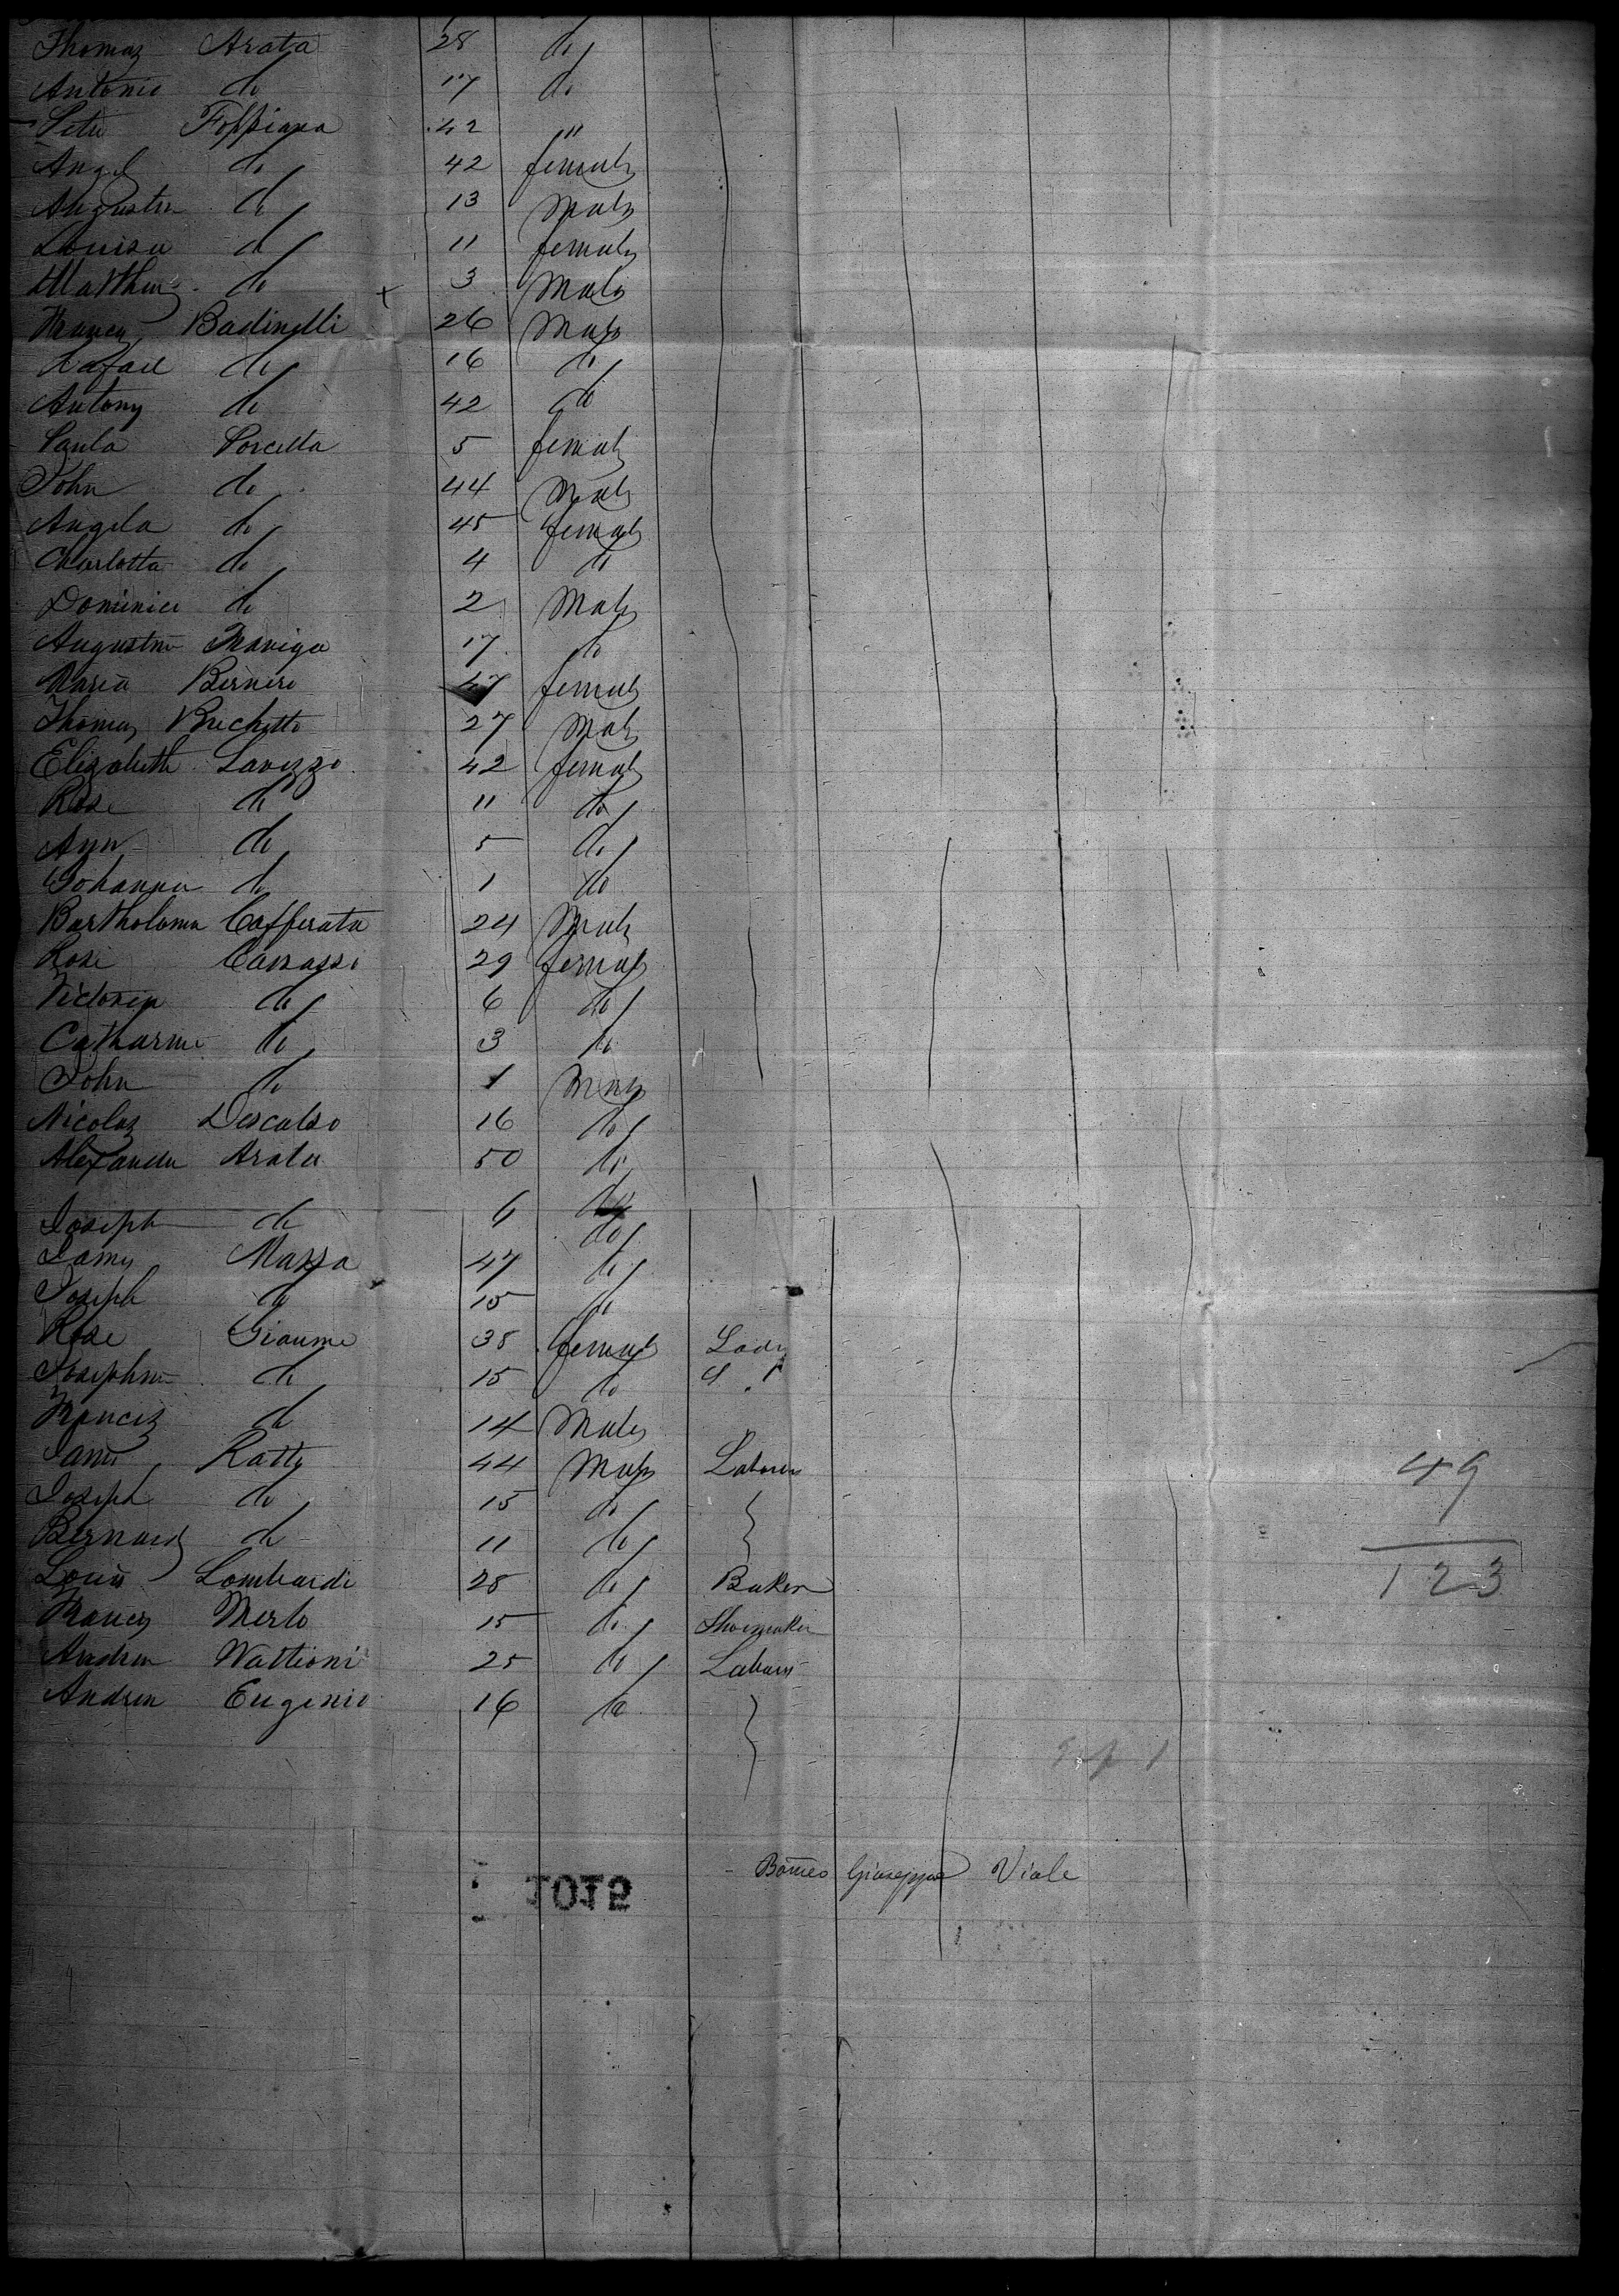 Thomas Arata 28 do
Antonio do 17 do
Peter Foppiana 42 "
Angel do 42 female
Augustin do 13 Male
Louisa do 11 female
Matthew do 3 Male
Francis Badinelli 26 Male
Rafael do 16 do
Antony do 42 do
Paula Porcella 5 female
John do 44 Male
Angela do 45 female
Charlotta do 4 do
Dominico do 2 Male
Augustino 17 do
Maria Bernero 47 female
Thomas Buchetto 27 Male
Elizabeth Lavezzo 42 female
Rose do 11 do
Ann do 5 do
Johanna do 1 do
Bartholomu Cafferata 24 Male
Rose 29 female
Victoria do 6 do
Catharine do 3 do
John do 1 Male
Nicolas Descalso 16 do
Alexander Arata 50 do
Joseph do 6 do
do
James Massa 47 do
Joseph do 15 do
Rose Giaume 38 female Lady
Josephine do 15 do
Francis do 14 Male
James Ratto 44 Male Laborer 49
Joseph do 15 do
Bernard do 11 do
Louis Lombardi 28 do Baker 123
Francis Merlo 15 do Shoemaker
Andrew Wattioni 25 do Laborer
Andrew Eugenio 16 do
Borneo Giuseppe Viale
1015